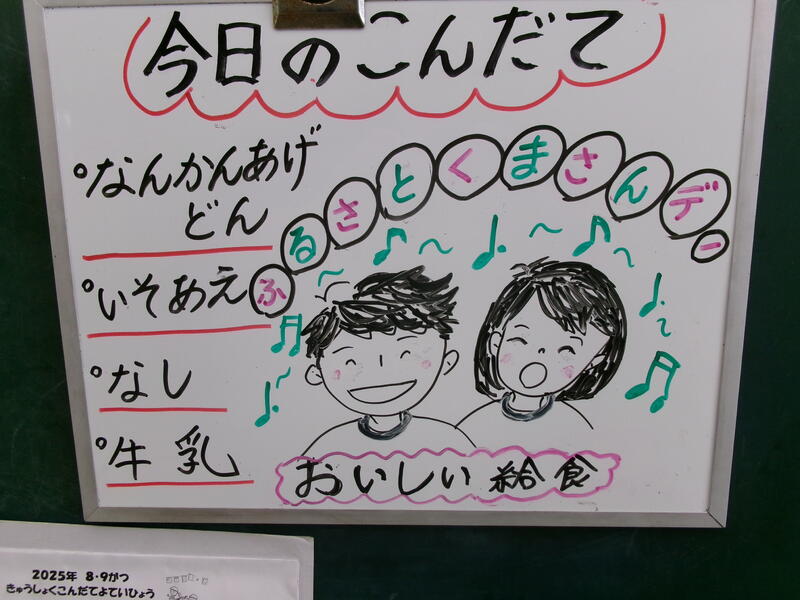 今日のこんだて
ふるさとくまさんデー
°なんかんあげ
どん
°いそあえ
°なし
°牛乳
おいしい給食
2025年 8・9がつ
きゅうしょくこんだてよていひょう